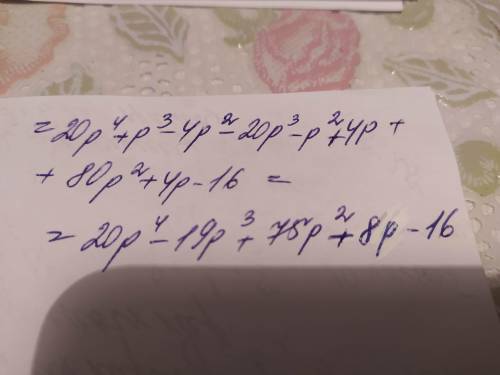 = 20p⁴ + p³ - 4p² - 20p³ - p² + 4p +
+ 80p² + 4p - 16 =
= 20p⁴ - 19p³ + 75p² + 8p - 16